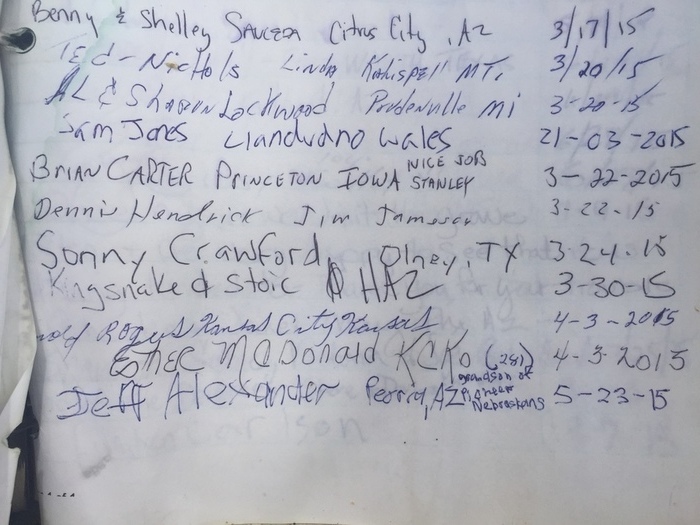 Benny & Shelley SAUCEDA Citrus City, AZ 3/17/15
TED - Nichols Linda Kalispell MT, 3/20/15
AL & SHARON Lockwood Prudenville mi 3-20-15
Sam Jones Llandudno Wales 21-03-2015
BRIAN CARTER PRINCETON IOWA NICE JOB STANLEY 3-22-2015
Dennis Hendrick Jim Jameson 3-22-15
Sonny Crawford, Olney, TX 3-24-15
Kingsnake & Stoic HAZ 3-30-15
Rogers Kansas City Kansas 4-3-2015
McDonald KCKo (281) 4-3-2015
Jeff Alexander Peoria, AZ grandson of Pioneer Nebraskans 5-23-15